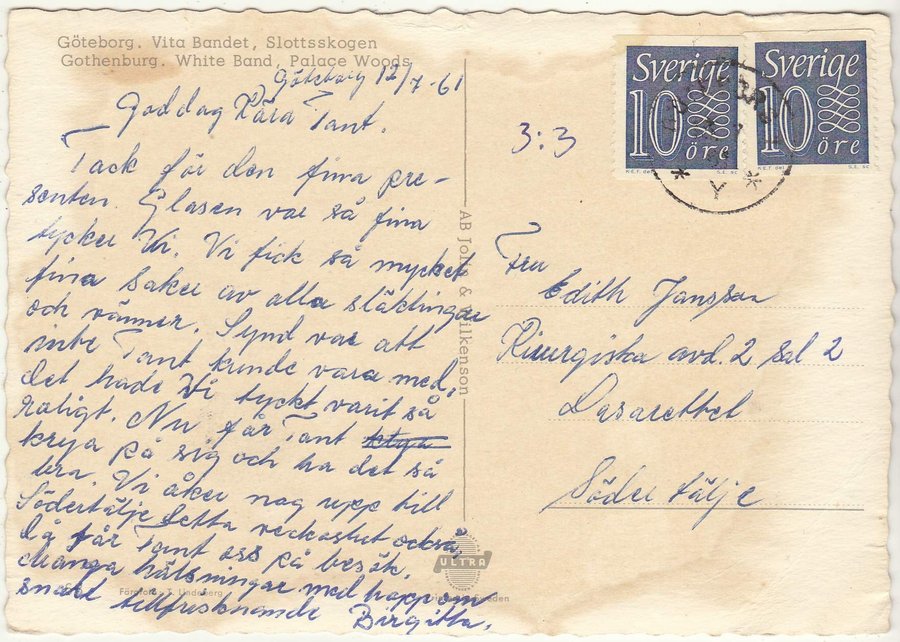 Göteborg. Vita Bandet, Slottsskogen
Gothenburg. White Band, Palace Woods
Göteborg 12/7-61
Goddag Kära Tant.
Tack för den fina pre-
senten. Glasen var så fina
tycker Vi. Vi fick så mycket
fina saker av alla släktingar
och vänner. Synd var att
inte Tant kunde vara med,
det hade Vi tyckt varit så
roligt. Nu får Tant
krya på sig och ha det så
bra. Vi åker nog upp till
Södertälje detta veckoslut också,
då får Tant oss på besök.
Många hälsningar med hopp om
snart tillfrisknande Birgitta.
Förtfoto: T. Lindeberg
AB Jolin & Wilkenson
ULTRA
Sweden
Sverige
10 öre
N.E.F. del. S.E. sc
Sverige
10 öre
N.E.F. del. S.E. sc
3:3
Fru
Edith Jansson
Kirurgiska avd. 2 sal 2
Lasarettet
Södertälje